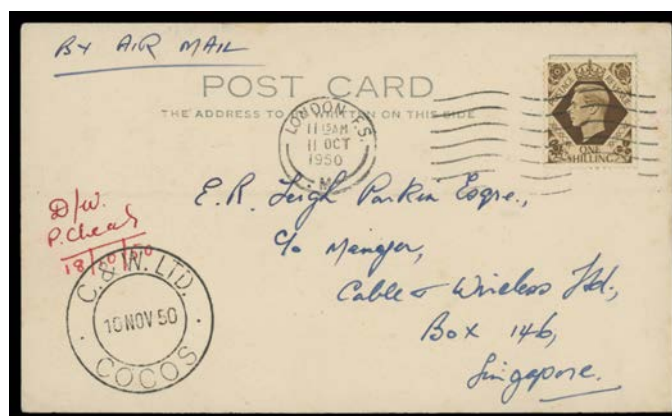 BY AIR MAIL
POST CARD
THE ADDRESS TO BE WRITTEN ON THIS SIDE
LONDON F.S.
11 15AM
11 OCT
1950
M
POSTAGE REVENUE
ONE
SHILLING
E. R. Leigh Parkin Esqre.,
c/o Manager,
Cable & Wireless Ltd.,
Box 146,
Singapore.
D/W.
P. Cheah
18/10/50
C. & W. LTD.
10 NOV 50
COCOS